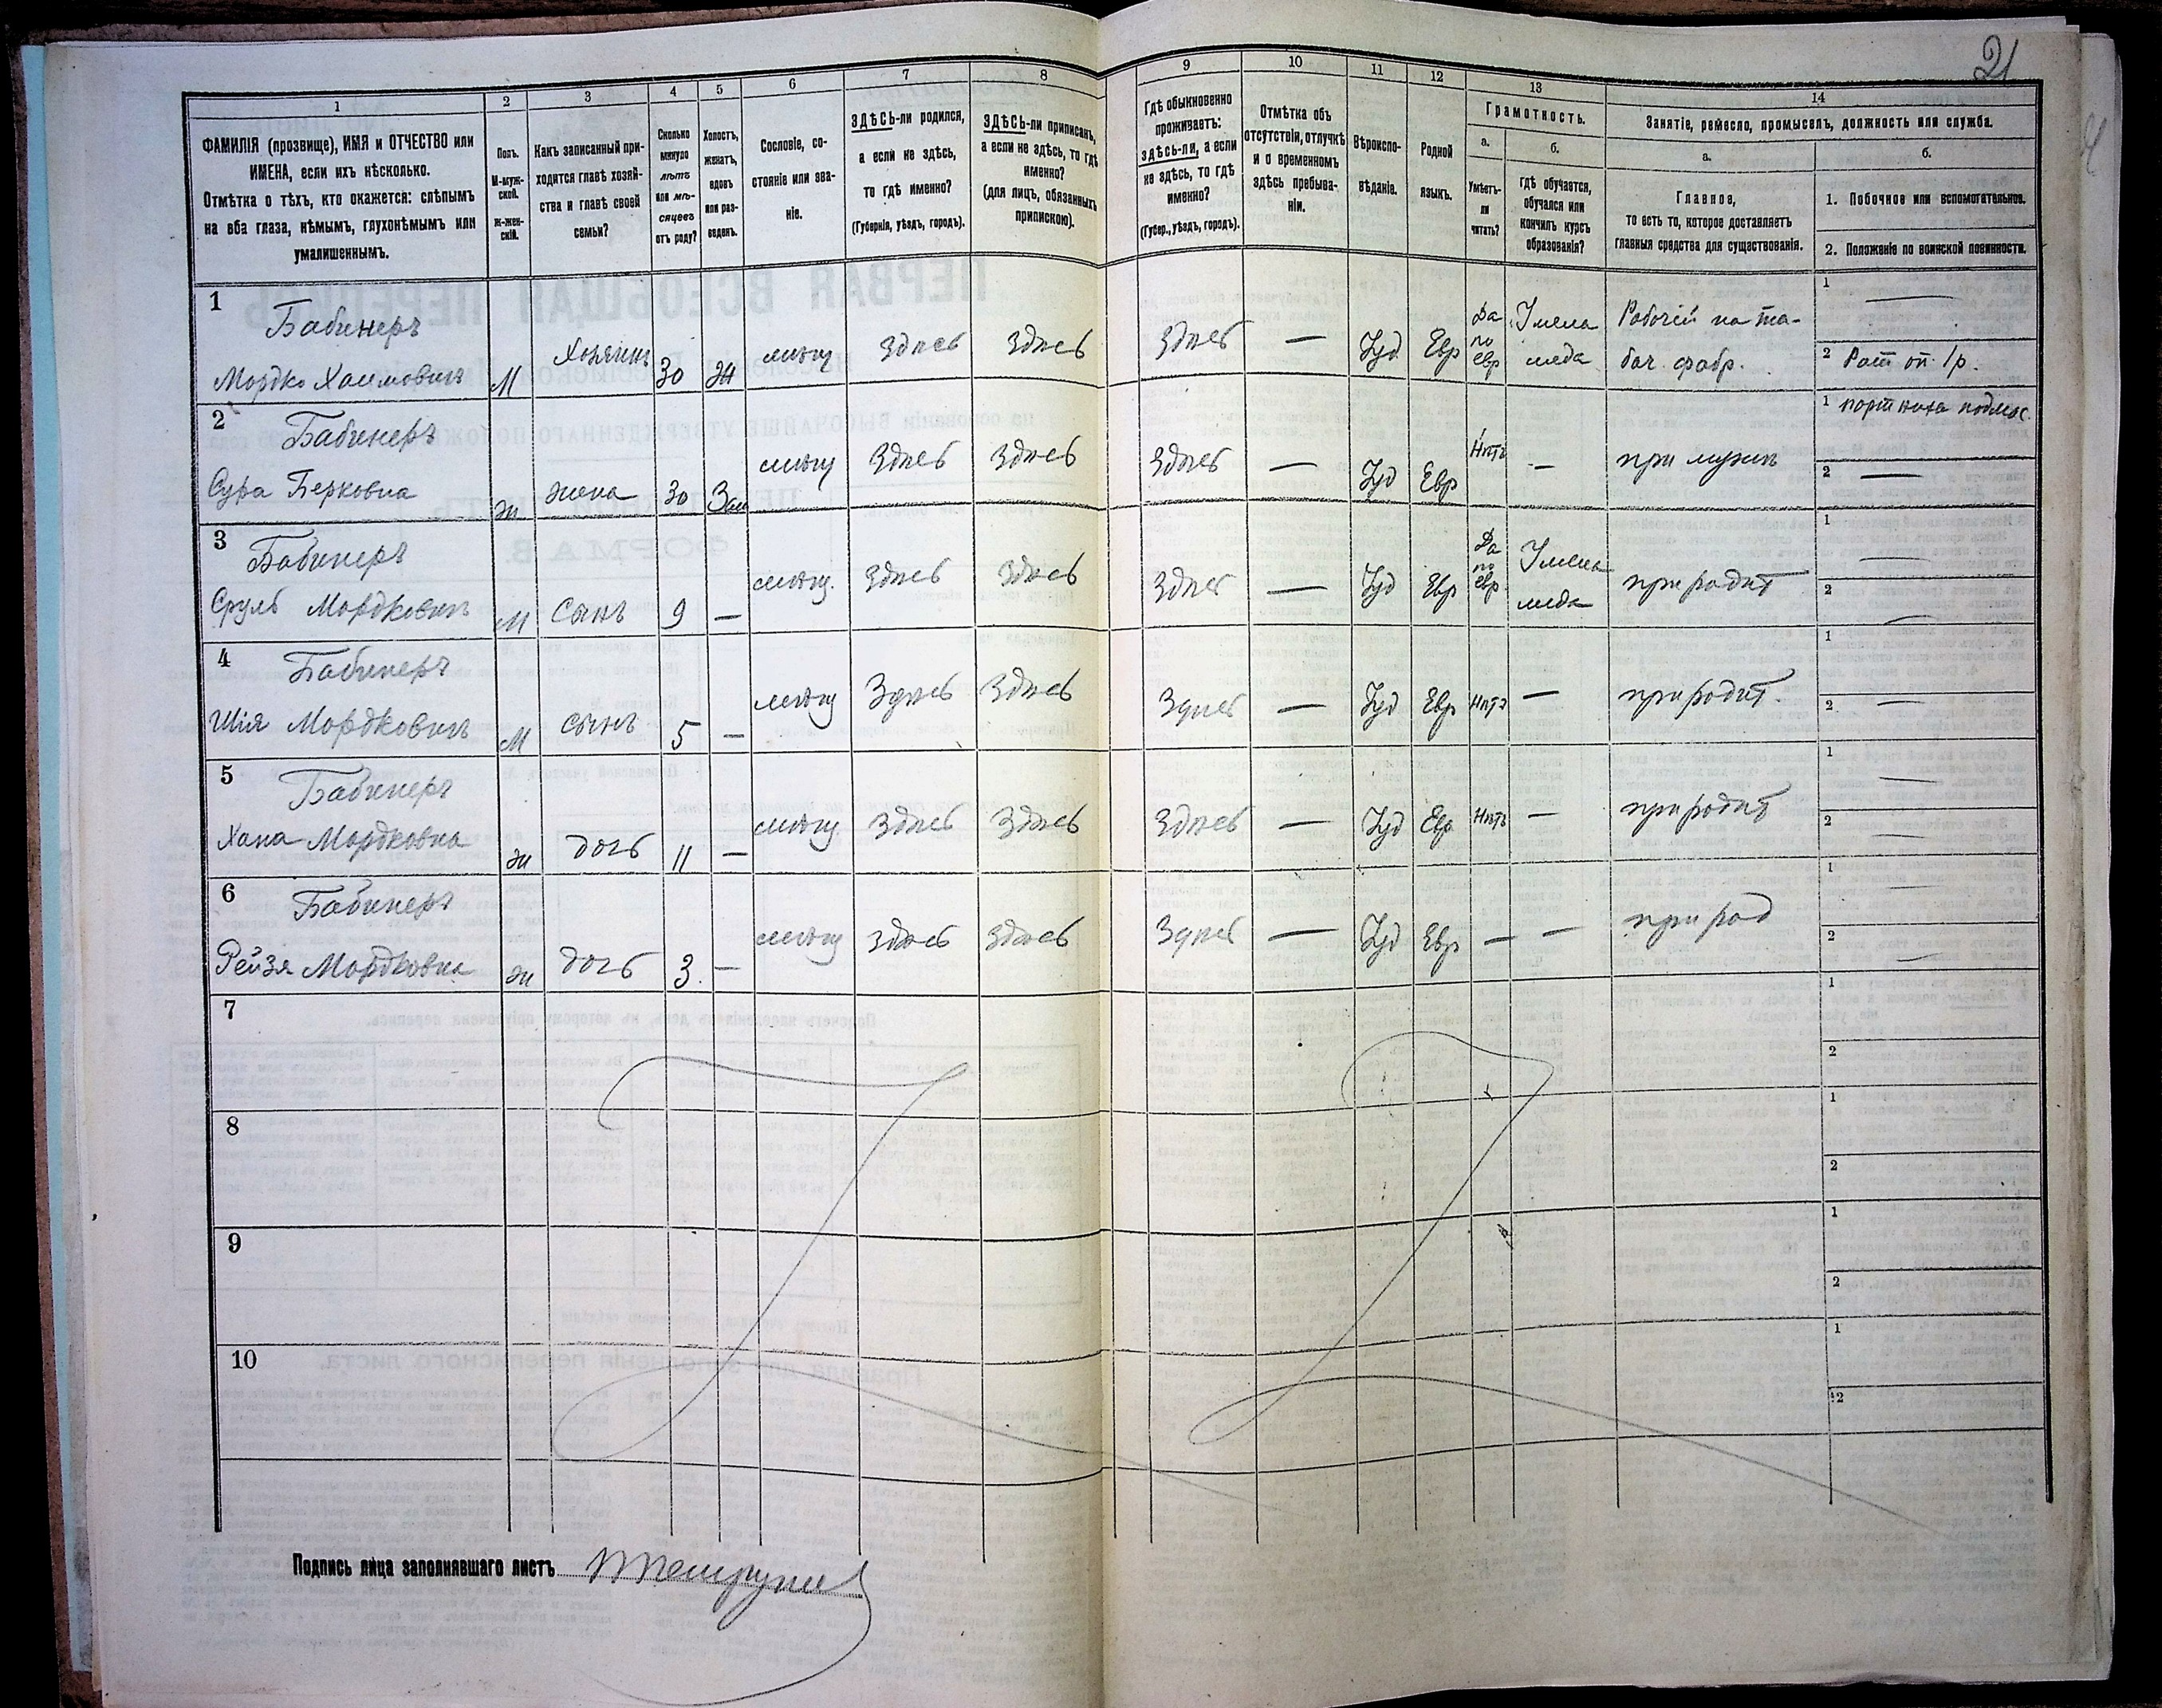 21
1
2
3
4
5
6
7
8
9
10
11
12
13
14
ФАМИЛІЯ (прозвище), ИМЯ и ОТЧЕСТВО или
ИМЕНА, если ихъ нѣсколько.
Отмѣтка о тѣхъ, кто окажется: слѣпымъ
на оба глаза, нѣмымъ, глухонѣмымъ или
умалишеннымъ.
Полъ.
М-муж-
ской.
Ж-жен-
скій.
Какъ записанный при-
ходится главѣ хозяй-
ства и главѣ своей
семьи?
Сколько
минуло
лѣтъ
или мѣ-
сяцевъ
отъ роду?
Холостъ,
женатъ,
вдовъ
или раз-
веденъ.
Сословіе, со-
стояніе или зва-
ніе.
ЗДѢСЬ-ли родился,
а если не здѣсь,
то гдѣ именно?
(Губернія, уѣздъ, городъ).
ЗДѢСЬ-ли приписанъ,
а если не здѣсь, то гдѣ
именно?
(для лицъ, обязанныхъ
припискою).
Гдѣ обыкновенно
проживаетъ:
здѣсь-ли, а если
не здѣсь, то гдѣ
именно?
(Губер., уѣздъ, городъ).
Отмѣтка объ
отсутствіи, отлучкѣ
и о временномъ
здѣсь пребыва-
ніи.
Вѣроиспо-
вѣданіе.
Родной
языкъ.
Грамотность.
а.
Умѣетъ-
ли
читать?
б.
гдѣ обучается,
обучался или
кончилъ курсъ
образованія?
Занятіе, ремесло, промыселъ, должность или служба.
а.
Главное,
то есть то, которое доставляетъ
главныя средства для существованія.
б.
1. Побочное или вспомогательное.
2. Положеніе по воинской повинности.
1
Бабинеръ
Мордко Хаимовичъ М Хозяинъ 30 Ж мѣщ Здѣсь Здѣсь Здѣсь — Іуд Евр Да по евр У мела меда Рабочій на та-
бач. фабр.
1 —
2 Рат оп. 1 р.
2
Бабинеръ
Сура Берковна ж жена 30 Зам мѣщ Здѣсь Здѣсь Здѣсь — Іуд Евр Нѣтъ — при мужѣ
1 портниха
2 —
3
Бабинеръ
Сруль Мордковичъ М Сынъ 9 — мѣщ. Здѣсь Здѣсь Здѣсь — Іуд Евр Да по евр. У мела меда при родит
1 —
2 —
4
Бабинеръ
Шія Мордковичъ М сынъ 5 — мѣщ Здѣсь Здѣсь Здѣсь — Іуд Евр Нѣтъ — при родит.
1
2 —
5
Бабинеръ
Хана Мордковна ж дочь 11 — мѣщ. Здѣсь Здѣсь Здѣсь — Іуд Евр Нѣтъ — при родит
1 —
2 —
6
Бабинеръ
Рейзя Мордковна ж дочь 3. — мѣщ Здѣсь Здѣсь Здѣсь — Іуд Евр — — при род
1 —
2 —
7
1
2
8
1
2
9
1
2
10
1
2
Подпись лица заполнявшаго листъ